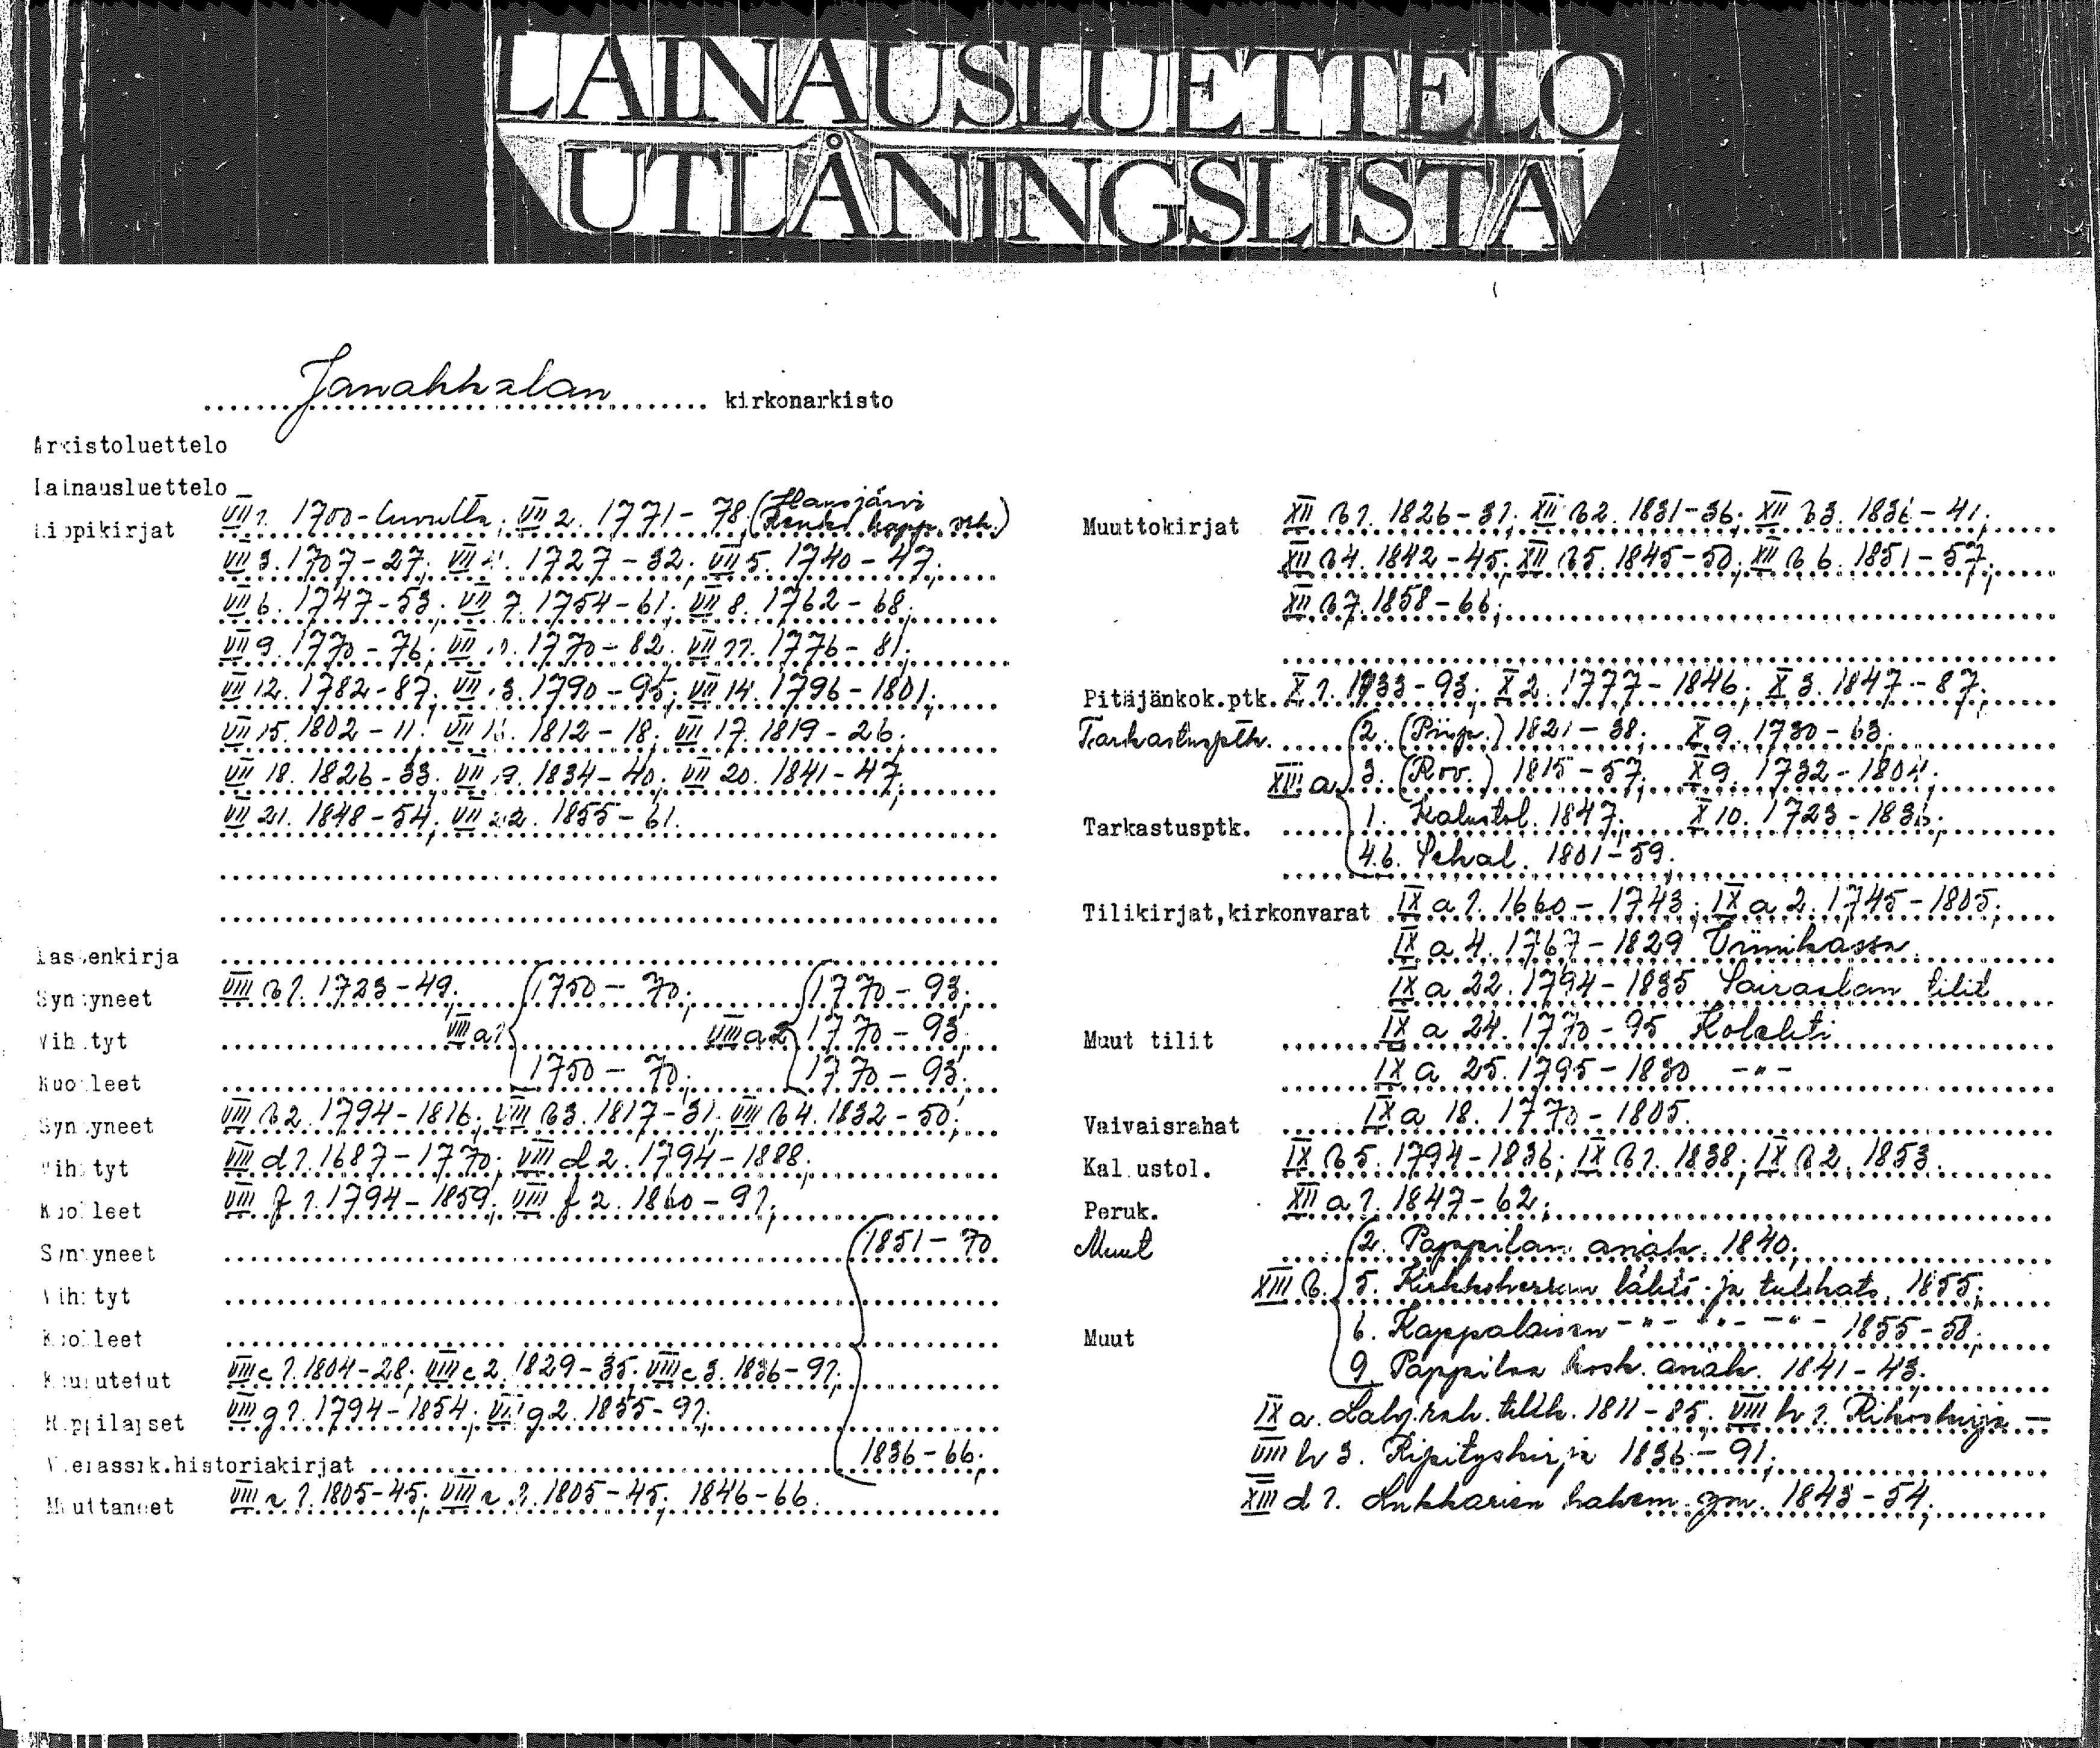 LAINAUSLUETTELO
UTLÅNINGSLISTA
Janakkalan kirkonarkisto
Arkistoluettelo
Lainausluettelo
Rippikirjat VII 1. 1700-luvulta; VII 2. 1771-78 (Hausjärvi Renko kapp. srk.)
VII 3. 1707-27; VII 4. 1727-32; VII 5. 1740-47;
VII 6. 1747-53; VII 7. 1754-61; VII 8. 1762-68;
VII 9. 1770-76; VII 10. 1770-82; VII 11. 1776-81;
VII 12. 1782-87; VII 13. 1790-95; VII 14. 1796-1801;
VII 15. 1802-11; VII 16. 1812-18; VII 17. 1819-26;
VII 18. 1826-33; VII 19. 1834-40; VII 20. 1841-47;
VII 21. 1848-54; VII 22. 1855-61.
Lastenkirja
Syntyneet VIII b 1. 1723-49; 1750-70; 1770-93;
Vihityt VIII a 1 VIII a 2 1770-93;
Kuolleet 1750-70; 1770-93;
Syntyneet VIII b 2. 1794-1816; VIII b 3. 1817-31; VIII b 4. 1832-50;
Vihityt VIII d 1. 1687-1770; VIII d 2. 1794-1888;
Kuolleet VIII f 1. 1794-1859; VIII f 2. 1860-91;
Syntyneet 1851-70
Vihityt
Kuolleet
Kuulutetut VIII c 1. 1804-28; VIII c 2. 1829-35; VIII c 3. 1836-91;
Rippilapset VIII g 1. 1794-1854; VIII g 2. 1855-91;
Vierassrk.historiakirjat 1836-66;
Muuttaneet 1. 1805-45; 1805-45; 1846-66.
Muuttokirjat XII b 1. 1826-31; XII b 2. 1831-36; XII b 3. 1836-41;
XII b 4. 1842-45; XII b 5. 1845-50; XII b 6. 1851-57;
XII b 7. 1858-66;
Pitäjänkok.ptk. X 1. 1733-93; X 2. 1777-1846; X 3. 1847-87;
Tarkastusptk. 2. (Piisp.) 1821-38; X 9. 1730-63.
XIII a 3. (Rov.) 1815-57; X 9. 1732-1804;
Tarkastusptk. 1. Kalustol. 1847; X 10. 1723-1836;
4.6. Sekal. 1801-59.
Tilikirjat,kirkonvarat IX a 1. 1660-1743; IX a 2. 1745-1805;
IX a 4. 1767-1829
IX a 22. 1794-1835 Sairaalan tilit
Muut tilit IX a 24. 1770-95 Kolehti
IX a 25. 1795-1830 -"-
Vaivaisrahat IX a 18. 1770-1805.
Kalustol. IX b 5. 1794-1836; IX b 1. 1838; IX b 2. 1853.
Peruk. XII a 1. 1847-62;
Muut 2. Pappilan anäk. 1840;
XIII b. 5. Kirkkoherran lähtö- ja tulokats. 1855;
Muut 6. Kappalaisen -"- -"- -"- 1855-58;
9. Pappilan kosk. anäk. 1841-43;
IX a. Lahj.rah. tilik. 1811-85; VIII h 1. Rikoskirja -
VIII h 3. Ripityskirja 1836-91;
XIII d 1. Lukkarien hakem. ym. 1843-54;